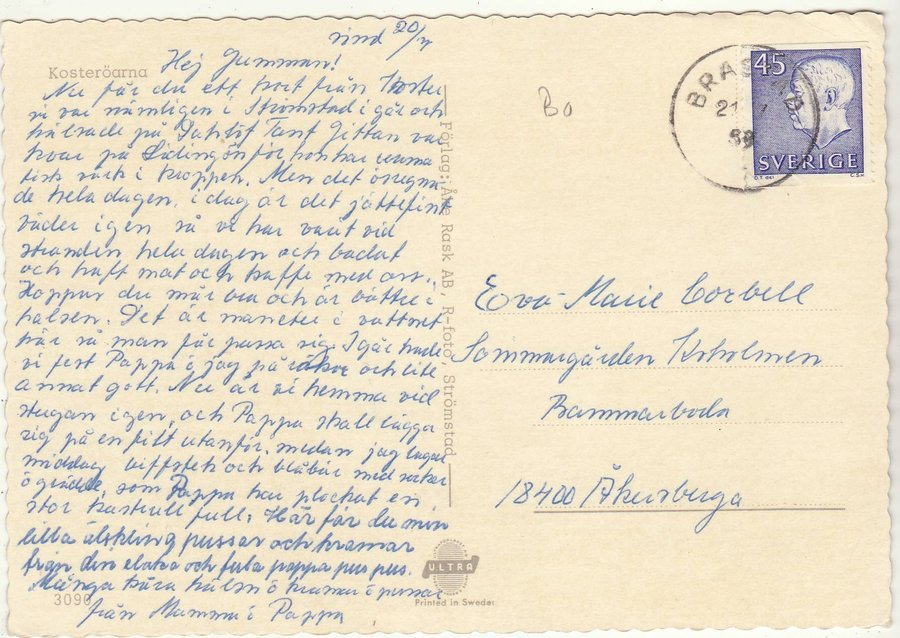 20/7
Hej Gumman!
Kosteröarna
Nu får du ett kort från Koster
vi var nämligen i Strömstad i går och
hälsade på Tant Gittan var
kvar på Lidingön för hon har
i kroppen. Men det ösregna
de hela dagen, i dag är det jättefint
väder igen så vi har varit vid
stranden hela dagen och badat
och haft mat och kaffe med oss.
Hoppas du mår bra och är bättre i
halsen. Det är maneter i vattnet
här så man får passa sig. I går hade
vi fest Pappa o jag på och lite
annat gott. Nu är vi hemma vid
stugan igen, och Pappa skall lägga
sig på en filt utanför, medan jag lagar
middag biffstek och blåbär med socker
o grädde, som Pappa har plockat en
stor kastrull full. Här får du min
lilla älskling pussar och kramar
från din elaka och fula pappa pus pus.
Många kära hälsn o kramar o pussar
3090
från Mamma o Pappa
Förlag: Åke Rask AB, R-foto, Strömstad
ULTRA
Printed in Sweden
Bo
BRASTAD
21
45
SVERIGE
Eva-Marie Corbell
Sommargården
Bammarboda
18400 Åkersberga